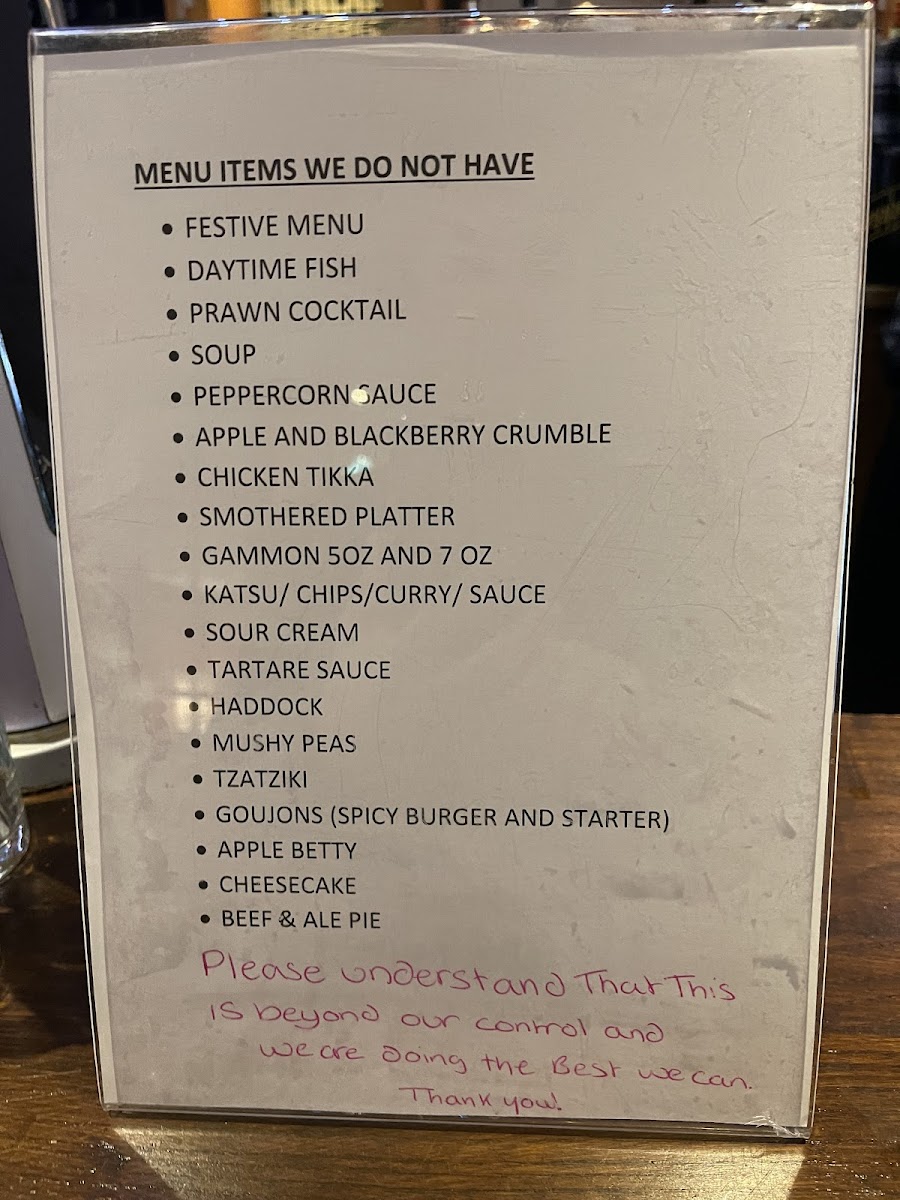 MENU ITEMS WE DO NOT HAVE
• FESTIVE MENU
• DAYTIME FISH
• PRAWN COCKTAIL
• SOUP
• PEPPERCORN SAUCE
• APPLE AND BLACKBERRY CRUMBLE
• CHICKEN TIKKA
• SMOTHERED PLATTER
• GAMMON 5OZ AND 7 OZ
• KATSU/ CHIPS/CURRY/ SAUCE
• SOUR CREAM
• TARTARE SAUCE
• HADDOCK
• MUSHY PEAS
• TZATZIKI
• GOUJONS (SPICY BURGER AND STARTER)
• APPLE BETTY
• CHEESECAKE
• BEEF & ALE PIE
Please understand That This
is beyond our control and
we are doing the Best we can.
Thank you!